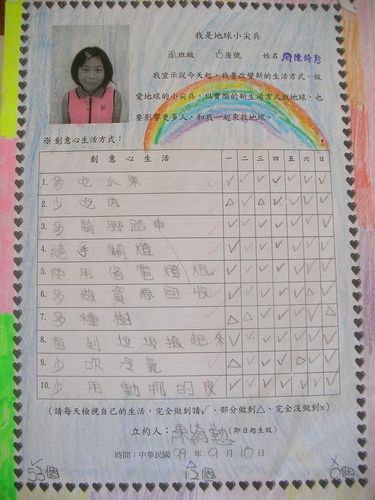 我是地球小尖兵
班級 15 座號 姓名 陳綺
我宣示從今天起，我要改變新的生活方式，做
愛地球的小尖兵，以實際的新生活方式救地球，也
要影響更多人，和我一起來救地球。
※ 創意心生活方式：
創意心生活 一 二 三 四 五 六 日
1. 多吃水果 ✓ ✓ ✓ ✓ ✓ ✓ ✓
2. 少吃肉
3. 多騎腳踏車 ✓ ✓ ✓ ✓ ✓ ✓ ✓
4. 隨手關燈 ✓ ✓ ✓ ✓ ✓ ✓ ✓
5. 使用省電燈 ✓ ✓ ✓ ✓ ✓ ✓ ✓
6. 多做資源回收
7. 多種樹
8. 看到垃圾撿起來 ✓ ✓ ✓ ✓ ✓ ✓ ✓
9. 少吹冷氣
10. 少用動物的皮 ✓ ✓ ✓ ✓ ✓ ✓ ✓
(請每天檢視自己的生活，完全做到請✓、部分做到△、完全沒做到×)
立約人：陳綺 (即日起生效)
時間：中華民國 99 年 9 月 10 日
✓ 53個 △ 12個 0個